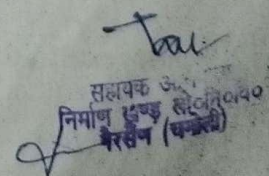 सहायक अ
निर्माण खण्ड लो०नि०वि०
गैरसैंण (चमोली)